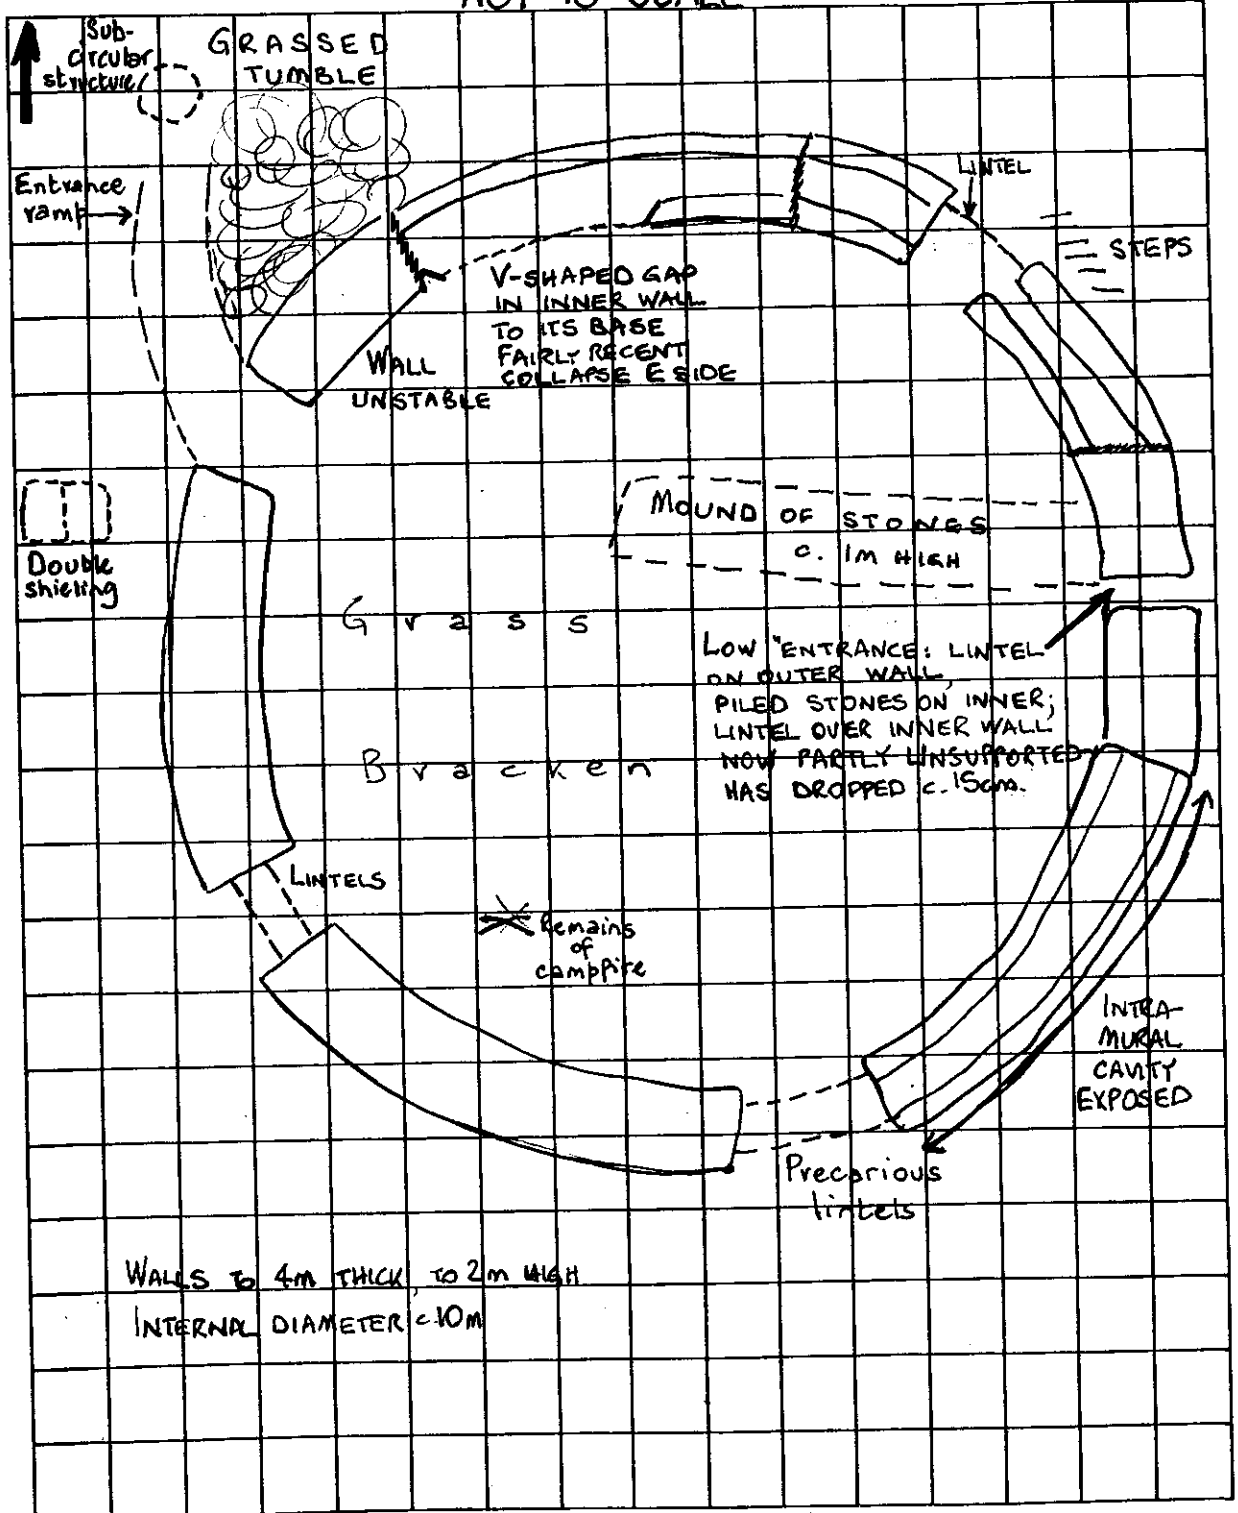 NOT TO SCALE
Sub-
circular
structure
GRASSED
TUMBLE
Entrance
ramp
LINTEL
STEPS
V-SHAPED GAP
IN INNER WALL
TO ITS BASE
FAIRLY RECENT
COLLAPSE E SIDE
WALL
UNSTABLE
MOUND OF STONES
c. 1m HIGH
Double
shieling
Grass
LOW "ENTRANCE: LINTEL
ON OUTER WALL,
PILED STONES ON INNER;
LINTEL OVER INNER WALL
NOW PARTLY UNSUPPORTED
HAS DROPPED c. 15cm.
Bracken
LINTELS
Remains
of
campfire
INTRA-
MURAL
CAVITY
EXPOSED
Precarious
lintels
WALLS TO 4m THICK, TO 2m HIGH
INTERNAL DIAMETER c.10m